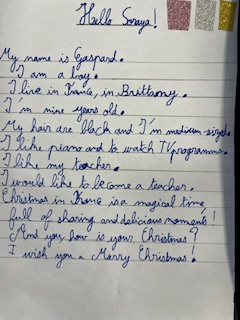 Hello Soraya!
My name is Gaspard.
I am a boy.
I live in France, in Brittany.
I'm nine years old.
My hair are black and I'm medium-sized.
I like piano and to watch TV programms.
I like my teacher.
I would like to become a teacher.
Christmas in France is a magical time,
full of sharing and delicious moments!
And you, how is your Christmas?
I wish you a Merry Christmas!